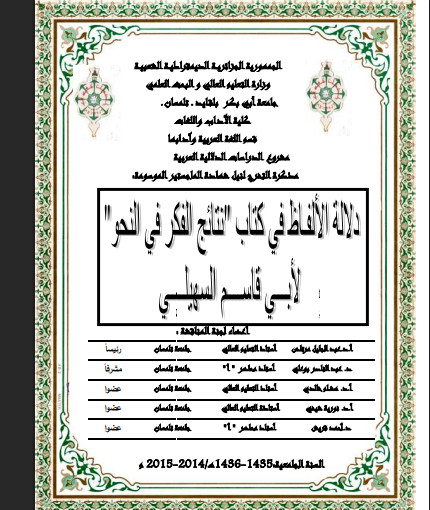 الجمهورية الجزائرية الديمقراطية الشعبية
وزارة التعليم العالي و البحث العلمي
جامعة أبي بكر بلقايد . تلمسان .
كلية الآداب واللغات
قسم اللغة العربية وآدابها
مشروع الدراسات الدلالية العربية
مذكرة التخرج لنيل شهادة الماجستير الموسومة:
دلالة الألفاظ في كتاب "نتائج الفكر في النحو"
لأبي قاسم السهيلي
أعضاء لجنة المناقشة :
أ.د عبد الجليل مرتاض أستاذ التعليم العالي جامعة تلمسان رئيساً
د. عبد الناصر بوعلي أستاذ محاضر "أ" جامعة تلمسان مشرفاً
أ.د. هشام خالدي أستاذ التعليم العالي جامعة تلمسان عضوا
أ.د. نورية شيخي أستاذة التعليم العالي جامعة تلمسان عضوا
د. أحمد قريش أستاذ محاضر "أ" جامعة تلمسان عضوا
السنة الجامعية:1435-1436هـ/2014-2015 م